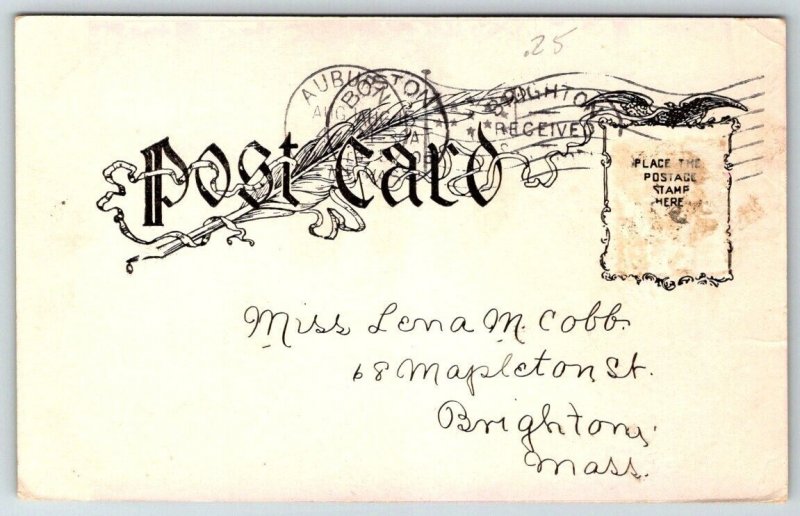 .25
AUBU
BOSTON
BRIGHTON
RECEIVED
Post Card
PLACE THE
POSTAGE
STAMP
HERE
Miss Lena M. Cobb.
68 Mapleton St.
Brighton,
Mass.